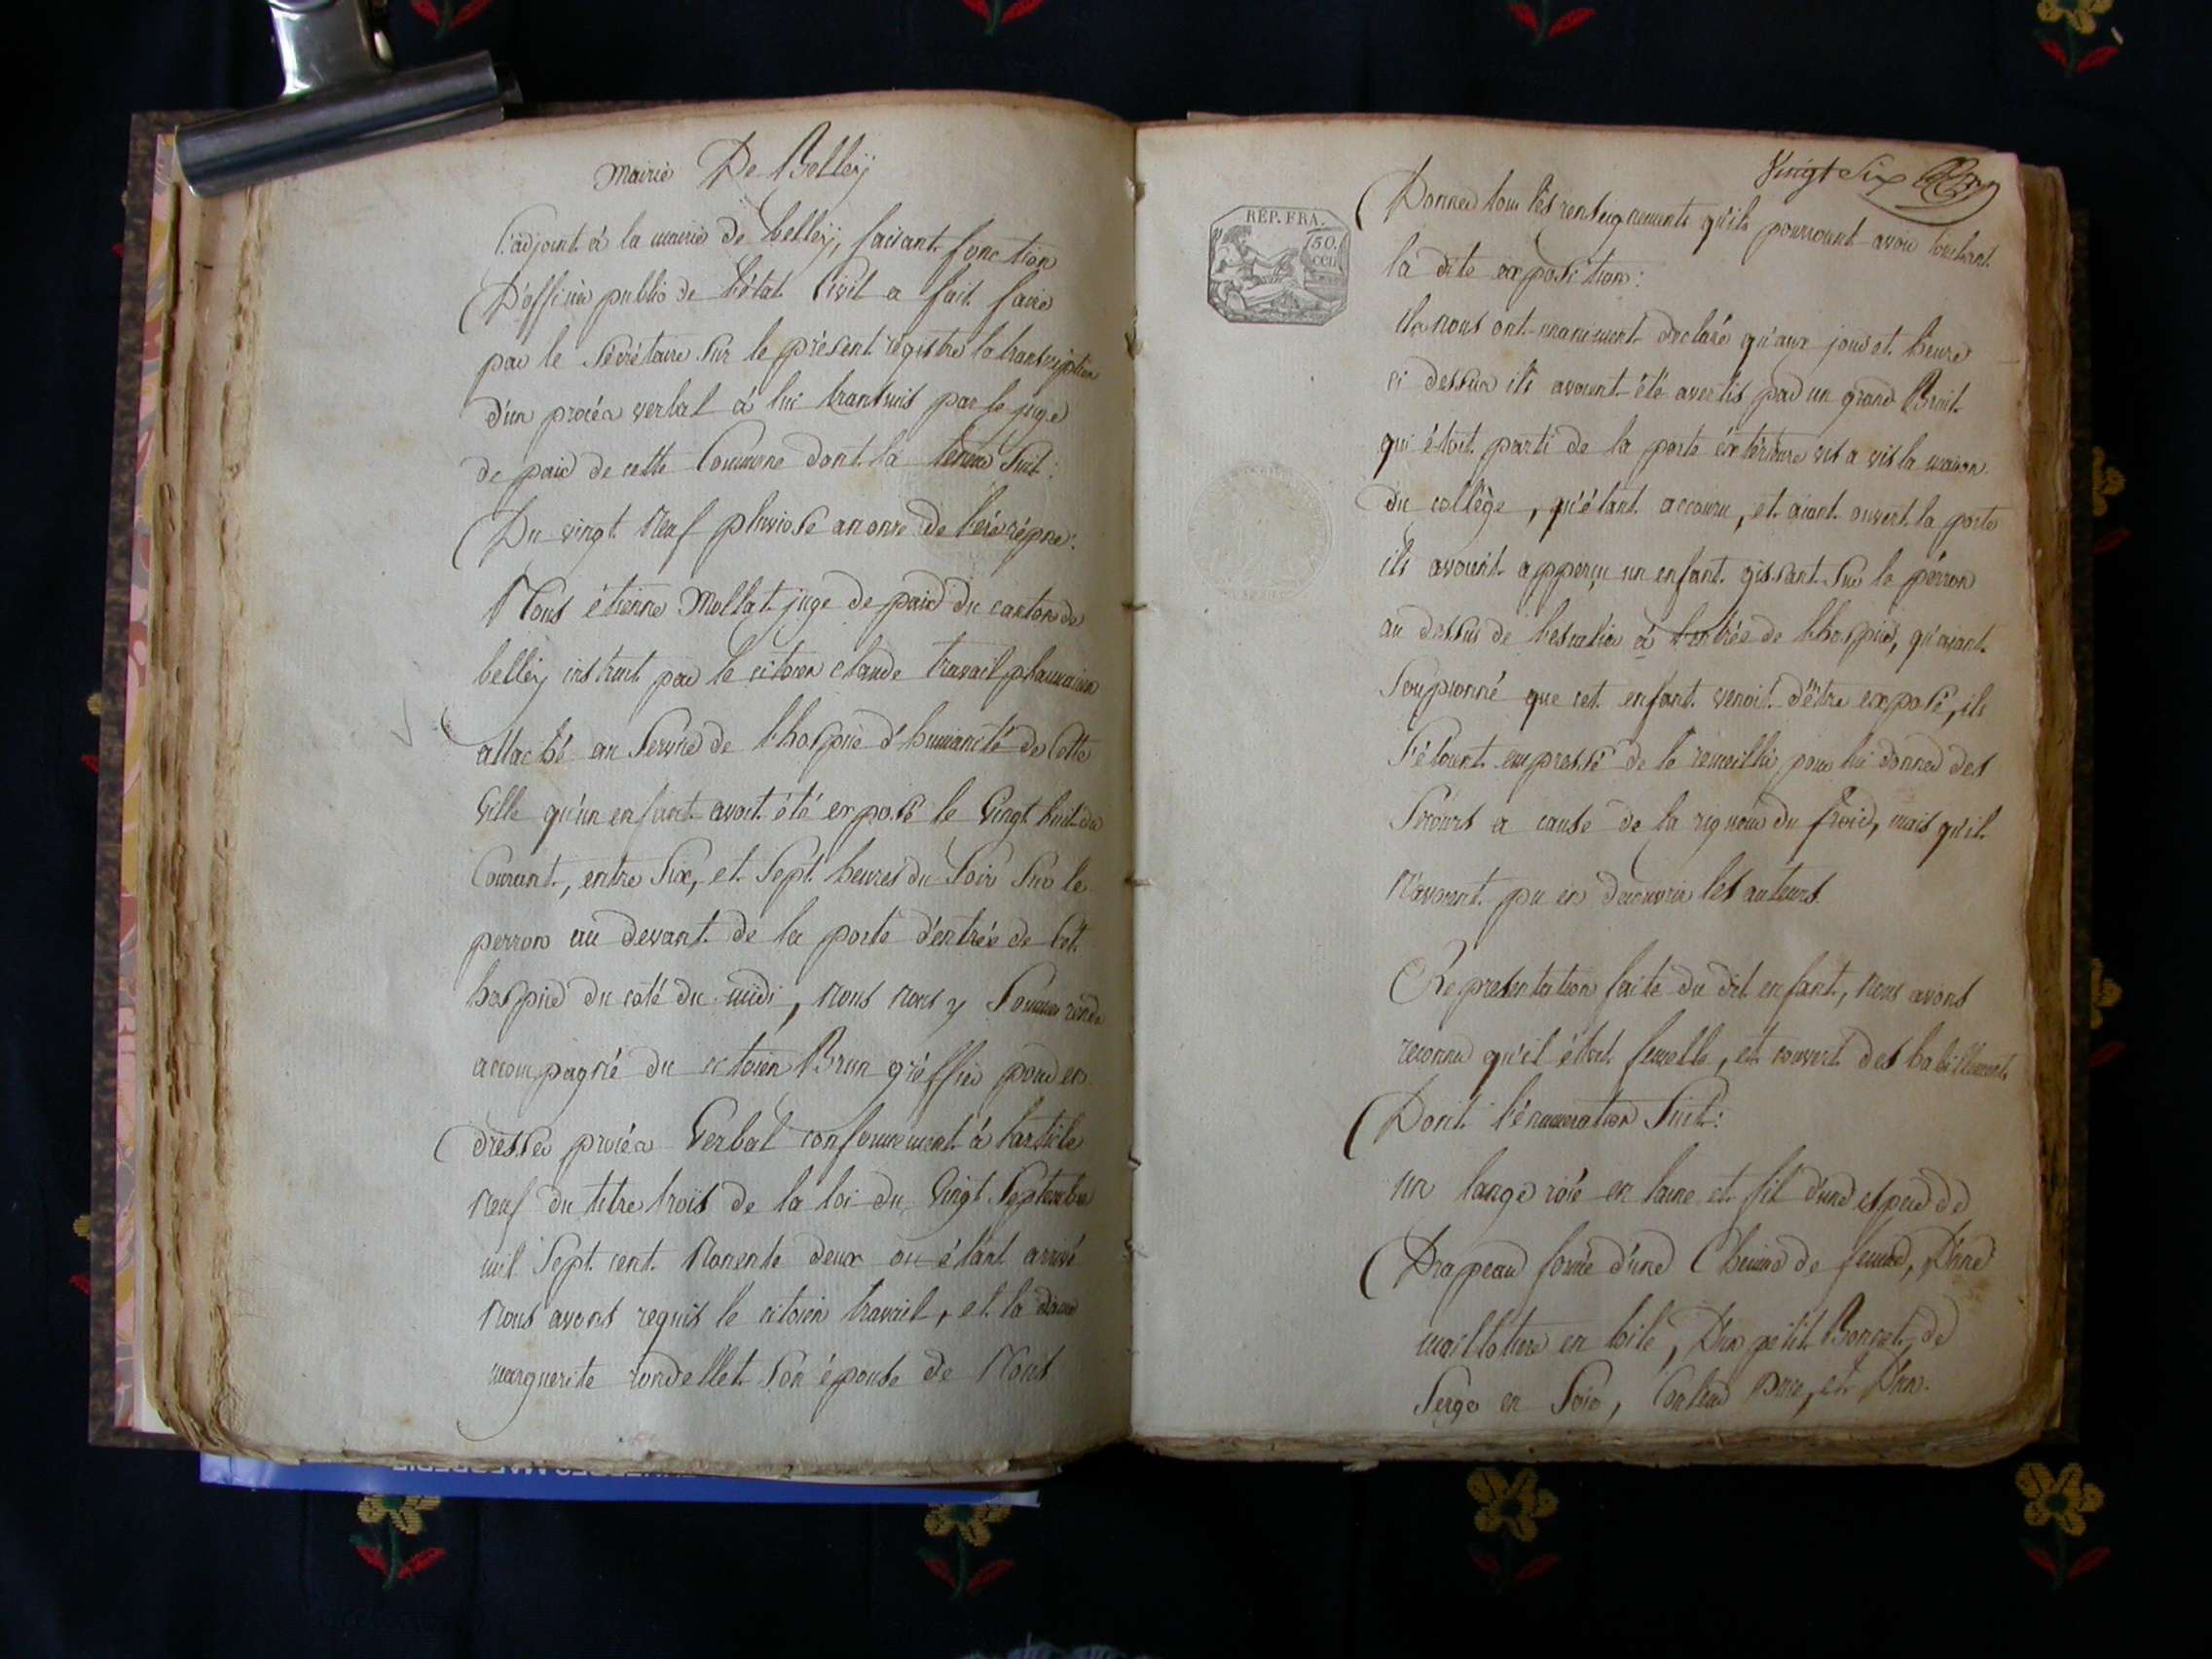 Mairie De Belleÿ
l'adjoint à la mairie de belleÿ, faisant fonction
D'officier public de l'état Civil a fait faire
par le Secrétaire Sur le présent registre la transcription
d'un procés verbal à lui transmis par le juge
de paix de cette Commune dont la teneur Suit:
Du vingt Neuf pluviose an onze de l'ére répne:
Nous étienne Mollat juge de paix du canton de
belleÿ instruit par le citoien claude travail pharmacien
attaché au Service de l'hospice d'humanité de Cette
Ville qu'un enfant avoit été exposé le Vingt huit du
Courant, entre Six, et Sept heures du Soir Sur le
perron au devant de la porte d'entrée de Cet
hospice du coté du midi, nous nous y Sommes rendu
accompagné du citoien Brun gréffier pour en
dresser procés Verbal conformement à l'article
neuf du titre trois de la loi du Vingt Septembre
mil Sept cent Nonente deux où étant arrivé
Nous avons requis le citoien travail, et la dame
marguerite rondellet Son épouse de Nous
Vingt Six
RÉP. FRA.
50.
cen.
Donner tous les renseignements qu'ils pourroient avoir touchant
la dite exposition:
ils nous ont unanimement déclaré qu'aux jour et heure
ci dessus ils avoient été avertis par un grand Bruit
qui étoit parti de la porte éxtérieure vis a vis la maison
du collège, qu'étant accouru, et aiant ouvert la porte
ils avoient apperçu un enfant gissant Sur le pérron
au dessus de l'escalier à l'entrée de l'hospice, qu'aiant
Soupçonné que cet enfant venoit d'être exposé, ils
S'étoient empressé de le recueillir pour lui donner des
Secours a cause de la rigueur du froid, mais qu'il
N'avoient pu en decouvrir les auteurs.
Representation faite du dit enfant, Nous avons
reconnu qu'il étoit femelle, et couvert des habillements
Dont l'énumeration Suit:
un lange roié en laine et fil d'une espece de
Drapeau formé d'une Chemise de femme, D'une
mailloture en toile, D'un petit Bonnet, de
Serge en Soie, Couleur puce, et D'un